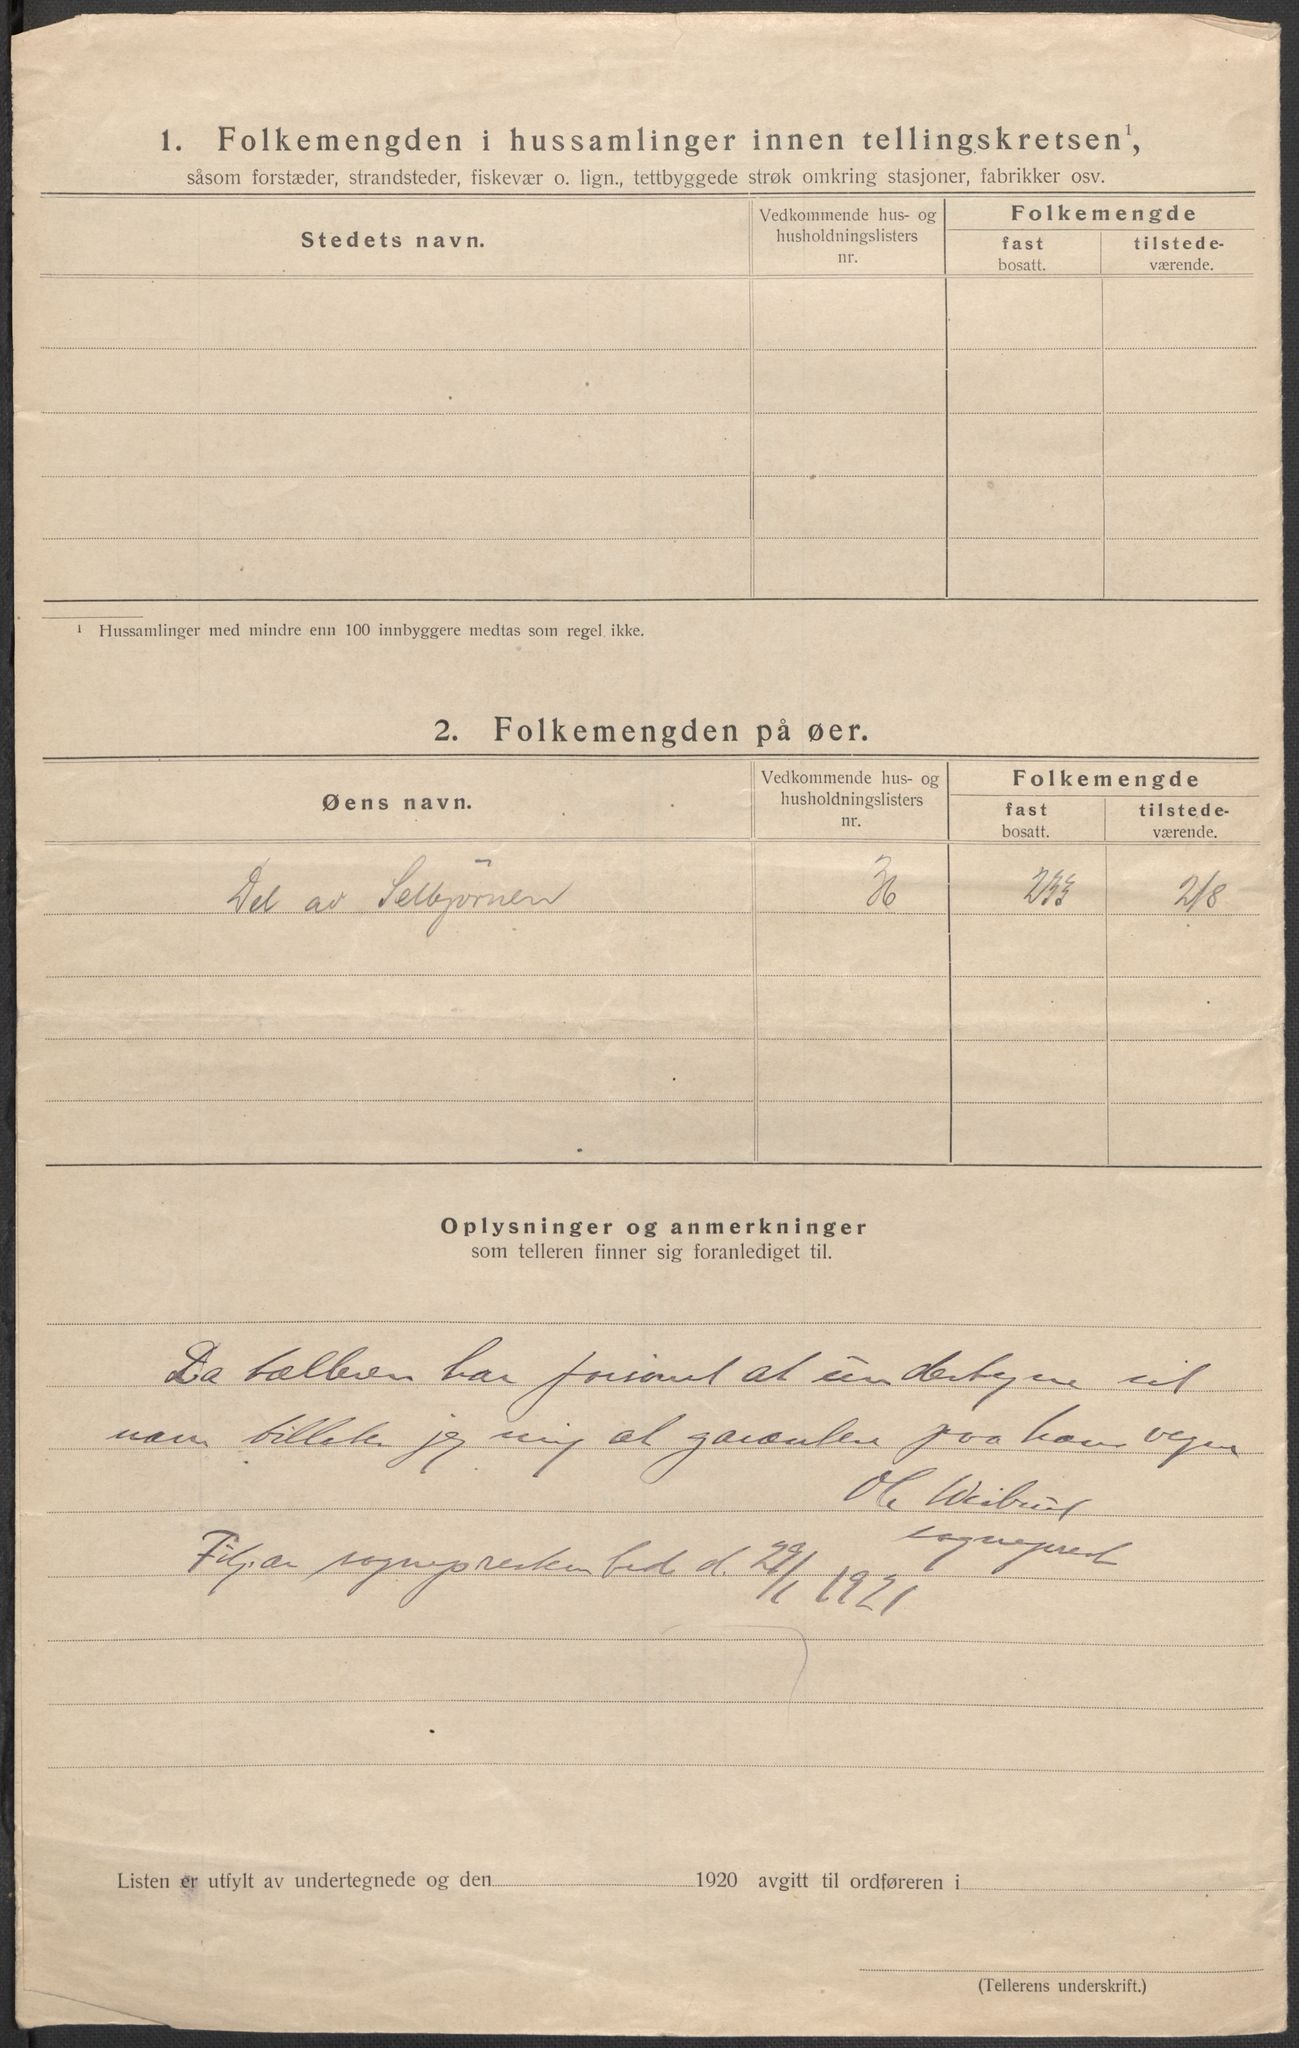 1. Folkemengden i hussamlinger innen tellingskretsen¹,
såsom forstæder, strandsteder, fiskevær o. lign., tettbyggede strøk omkring stasjoner, fabrikker osv.
Stedets navn.
Vedkommende hus- og
husholdningslisters
nr.
Folkemengde
fast
bosatt.
tilstede-
værende.
¹ Hussamlinger med mindre enn 100 innbyggere medtas som regel ikke.
2. Folkemengden på øer.
Øens navn.
Vedkommende hus- og
husholdningslisters
nr.
Folkemengde
fast
bosatt.
tilstede-
værende.
Del av Selbjörnen 36 233 218
Oplysninger og anmerkninger
som telleren finner sig foranlediget til.
Da tælleren har forsömt at undertegne sit
navn tillater jeg mig at garantere paa hans vegne
Ole
sogneprest
Fitjar sogneprestembede d. 29/1 1921
Listen er utfylt av undertegnede og den 1920 avgitt til ordføreren i
(Tellerens underskrift.)